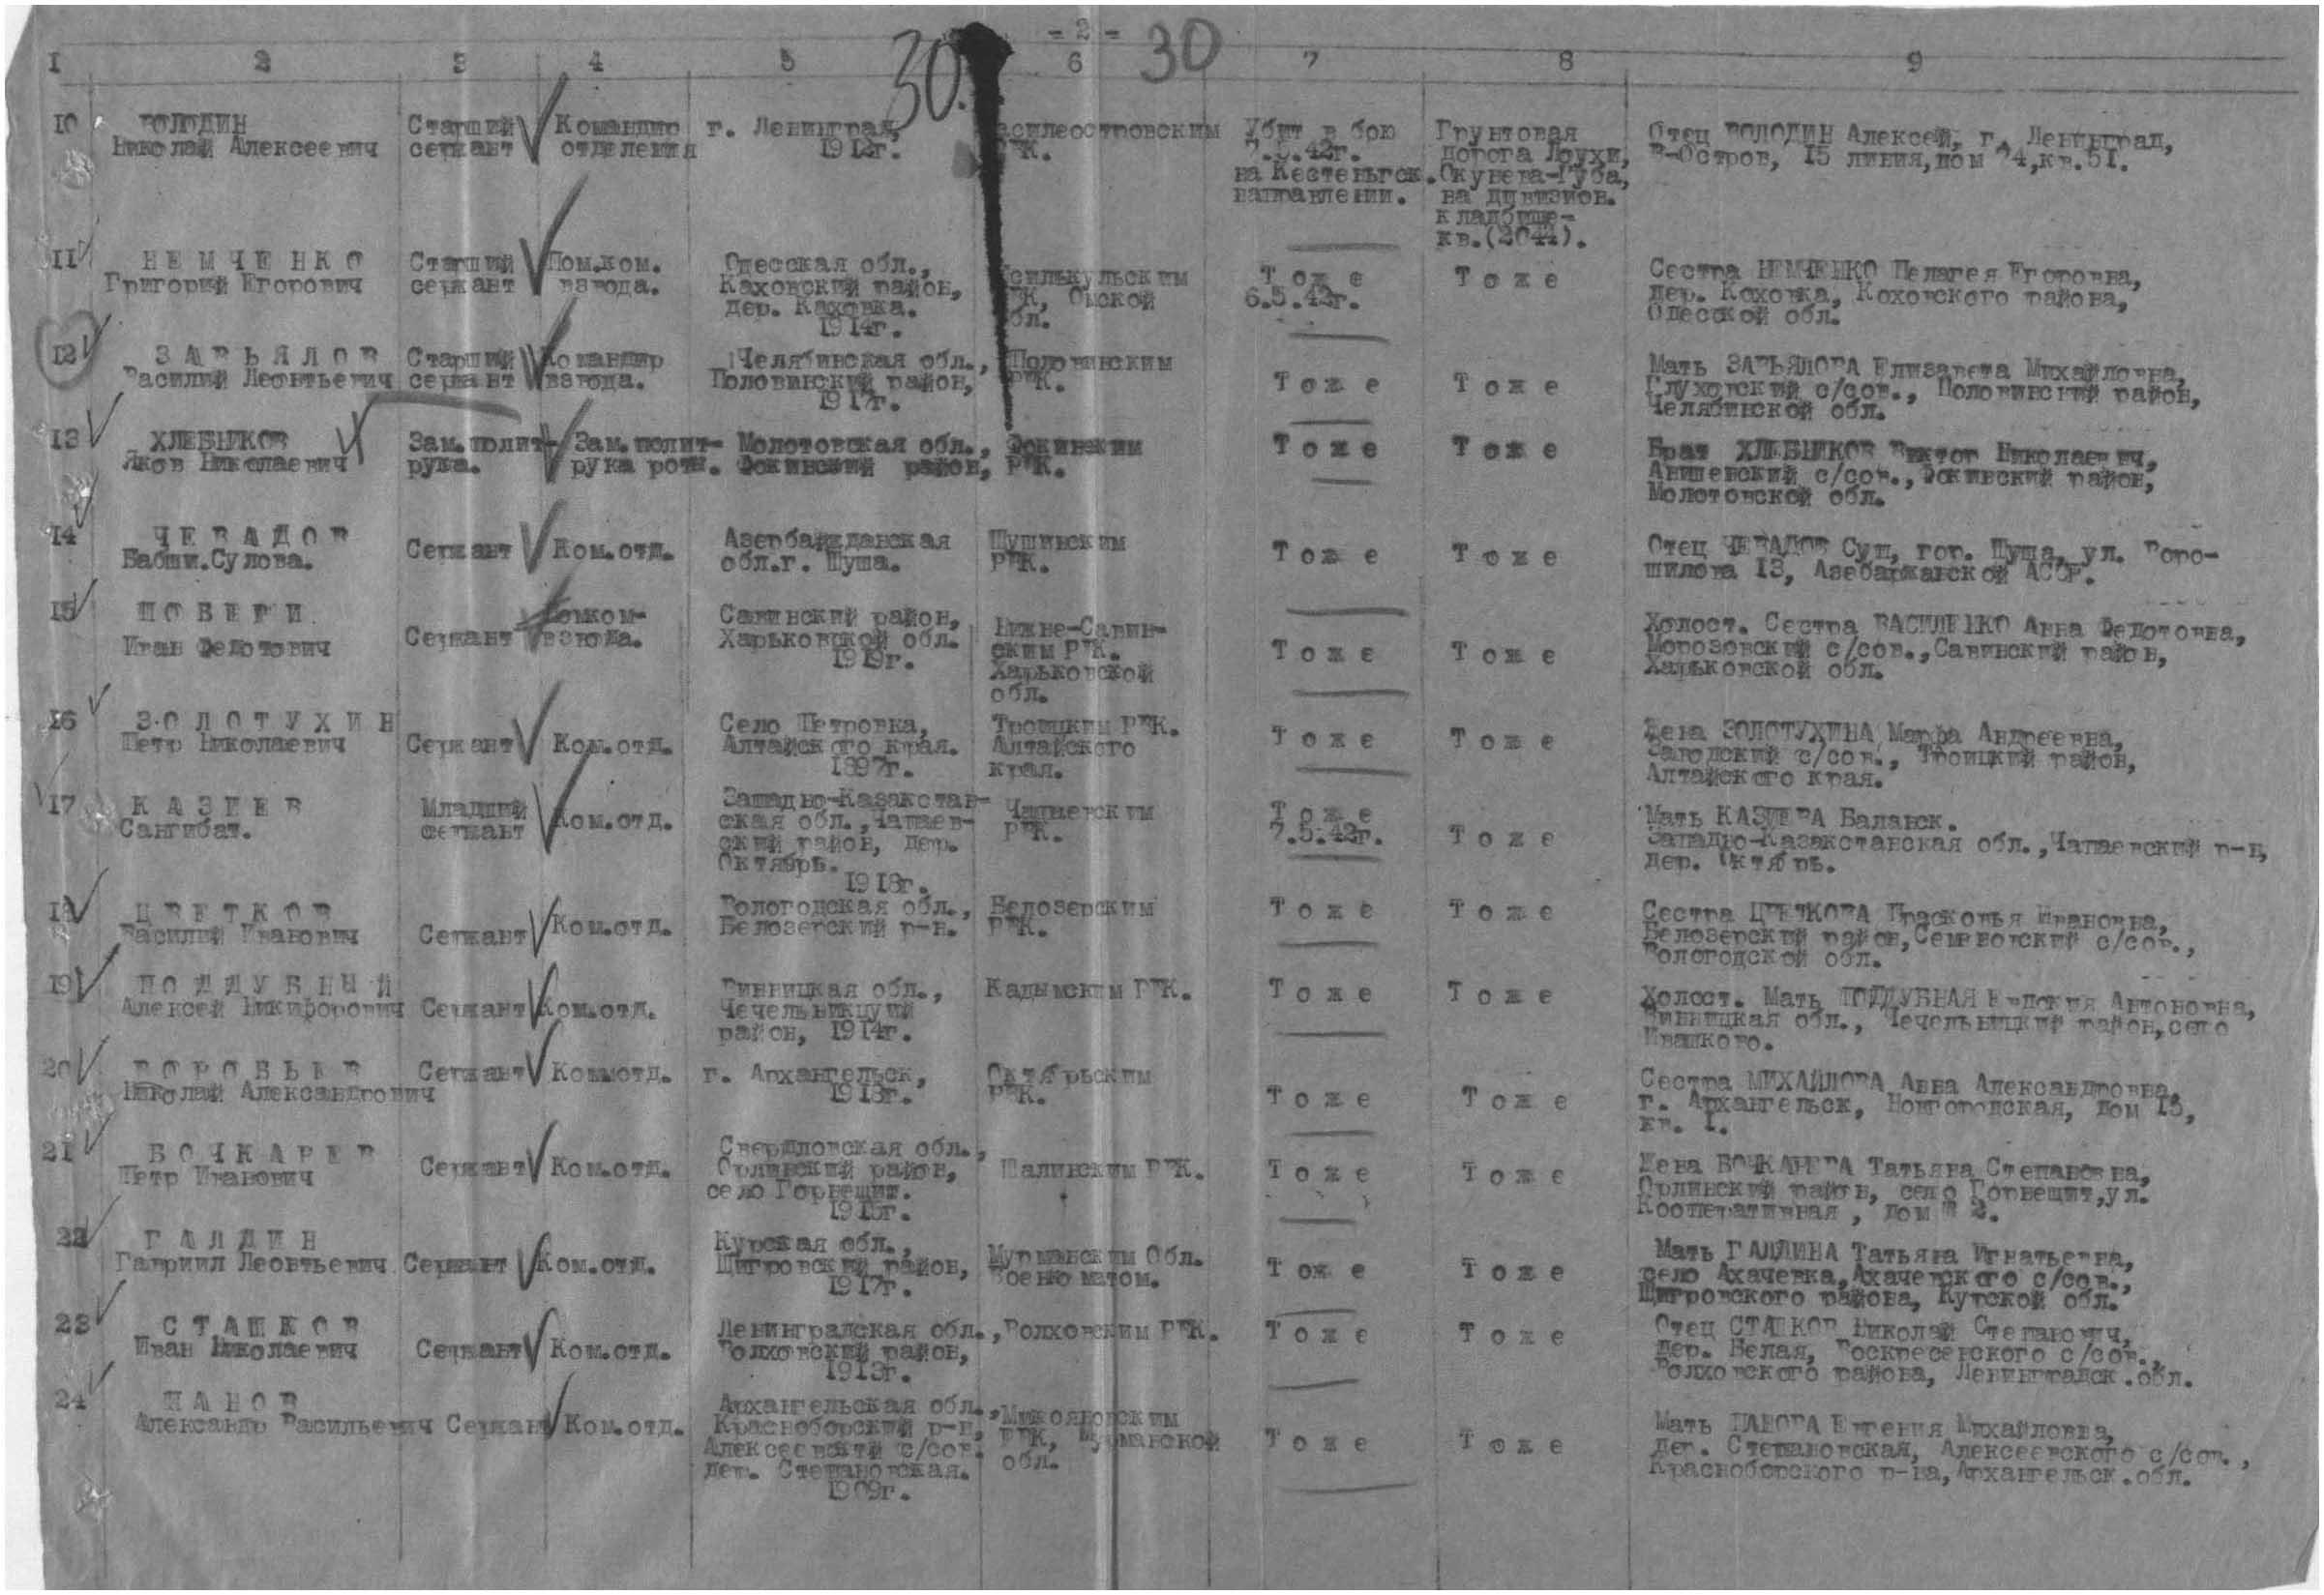 - 2 -
30. 30
I 2 3 4 5 6 7 8 9
10 ВОЛОДИН
Николай Алексеевич
Старший
сержант
Командир
отделения
г. Ленинград,
1912г.
асилеостровским
РВК.
Убит в бою
7.5.42г.
на Кестеньгск.
направлении.
Грунтовая
дорога Лоухи,
Окунева-Губа,
на дивизион.
кладбище-
кв.(2044).
Отец ВОЛОДИН Алексей, г. Ленинград,
В-Остров, 15 линия, дом 74, кв.51.
11 НЕМЧЕНКО
Григорий Егорович
Старший
сержант
Пом.ком.
взвода.
Одесская обл.,
Каховский район,
дер. Каховка.
1914г.
силькульским
РВК, Омской
обл.
Тоже
6.5.42г.
Тоже
Сестра НЕМЧЕНКО Пелагея Егоровна,
дер. Коховка, Коховского района,
Одесской обл.
12 ЗАВЬЯЛОВ
Василий Леонтьевич
Старший
сержант
Командир
взвода.
Челябинская обл.,
Половинский район,
1917г.
Половинским
РВК.
Тоже
Тоже
Мать ЗАВЬЯЛОВА Елизавета Михайловна,
Глуховский с/сов., Половинский район,
Челябинской обл.
13 ХЛЕБНИКОВ
Яков Николаевич
Зам.полит-
рука.
Зам.полит-
рука роты.
Молотовская обл.,
Фокинский район,
Фокинским
РВК.
Тоже
Тоже
Брат ХЛЕБНИКОВ Виктор Николаевич,
Анишевский с/сов., Фокинский район,
Молотовской обл.
14 ЧЕВАДОВ
Бабши.Сулова.
Сержант
Ком.отд.
Азербайжданская
обл.г. Шуша.
Шушинским
РВК.
Тоже
Тоже
Отец ЧЕВАДОВ Суп, гор. Шуша, ул. Воро-
шилова 13, Азебаржанской АССР.
15 ПОВЕРИ
Иван Федотович
Сержант
Помком-
взвода.
Савинский район,
Харьковской обл.
1919г.
Нижне-Савин-
ским РВК.
Харьковской
обл.
Тоже
Тоже
Холост. Сестра ВАСИЛЕНКО Анна Федотовна,
Морозовский с/сов., Савинский район,
Харьковской обл.
16 ЗОЛОТУХИН
Петр Николаевич
Сержант
Ком.отд.
Село Петровка,
Алтайского края.
1897г.
Троицким РВК.
Алтайского
края.
Тоже
Тоже
Жена ЗОЛОТУХИНА Марфа Андреевна,
Заводский с/сов., Троицкий район,
Алтайского края.
17 КАЗИЕВ
Сангибат.
Младший
сержант
Ком.отд.
Западно-Казакстан-
ская обл., Чапаев-
ский район, дер.
Октябрь.
1918г.
Чапаевским
РВК.
Тоже
7.5.42г.
Тоже
Мать КАЗИЕВА Баланск.
Западно-Казакстанская обл., Чапаевский р-н,
дер. Октябрь.
18 ЦВЕТКОВ
Василий Иванович
Сержант
Ком.отд.
Вологодская обл.,
Белозерский р-н.
Белозерским
РВК.
Тоже
Тоже
Сестра ЦВЕТКОВА Прасковья Ивановна,
Белозерский район, с/сов.,
Вологодской обл.
19 ПОДДУБНЫЙ
Алексей Никифорович
Сержант
Ком.отд.
Винницкая обл.,
Чечельникцуий
район, 1914г.
Кадымским РВК.
Тоже
Тоже
Холост. Мать ПОДДУБНАЯ Евдокия Антоновна,
Винницкая обл., Чечельницкий район, село
Ивашково.
20 ВОРОБЬЕВ
Николай Александрович
Сержант
Коммотд.
г. Архангельск,
1918г.
Октябрьским
РВК.
Тоже
Тоже
Сестра МИХАЙЛОВА Анна Александровна,
г. Архангельск, Новгородская, дом 15,
кв. 1.
21 БОЧКАРЕВ
Петр Иванович
Сержант
Ком.отд.
Свердловская обл.,
Орлинский район,
село Горнещит.
Шалинским РВК.
Тоже
Тоже
Жена БОЧКАРЕВА Татьяна Степановна,
Орлинский район, село Горнещит, ул.
Кооперативная, дом № 2.
22 ГАЛДИН
Гавриил Леонтьевич
Сержант
Ком.отд.
Курская обл.,
Щигровский район,
1917г.
Мурманским Обл.
Военкоматом.
Тоже
Тоже
Мать ГАЛДИНА Татьяна Игнатьевна,
село Ахачевка, Ахачевского с/сов.,
Щигровского района, Курской обл.
23 СТАШКОВ
Иван Николаевич
Сержант
Ком.отд.
Ленинградская обл.,
Волховский район,
1913г.
Волховским РВК.
Тоже
Тоже
Отец СТАШКОВ Николай Степанович,
дер. Белая, Воскресенского с/сов.,
Волховского района, Ленинградск.обл.
24 ПАНОВ
Александр Васильевич
Сержант
Ком.отд.
Архангельская обл.,
Красноборский р-н,
Алексеевский с/сов.
дер. Степановская.
1909г.
Микояновским
РВК, Мурманской
обл.
Тоже
Тоже
Мать ПАНОВА Евгения Михайловна,
дер. Степановская, Алексеевского с/сов.,
Красноборского р-на, Архангельск.обл.